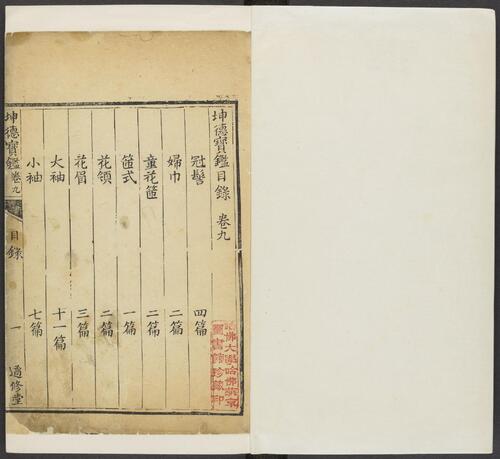 坤德寶鑑目錄 卷九
冠髻 四篇
婦巾 二篇
童花箍 二篇
箍式 一篇
花領 二篇
花眉 三篇
大袖 十一篇
小袖 七篇
坤德寶鑑 卷九 目錄 一 適修堂
哈佛大學哈佛燕京
圖書館珍藏印